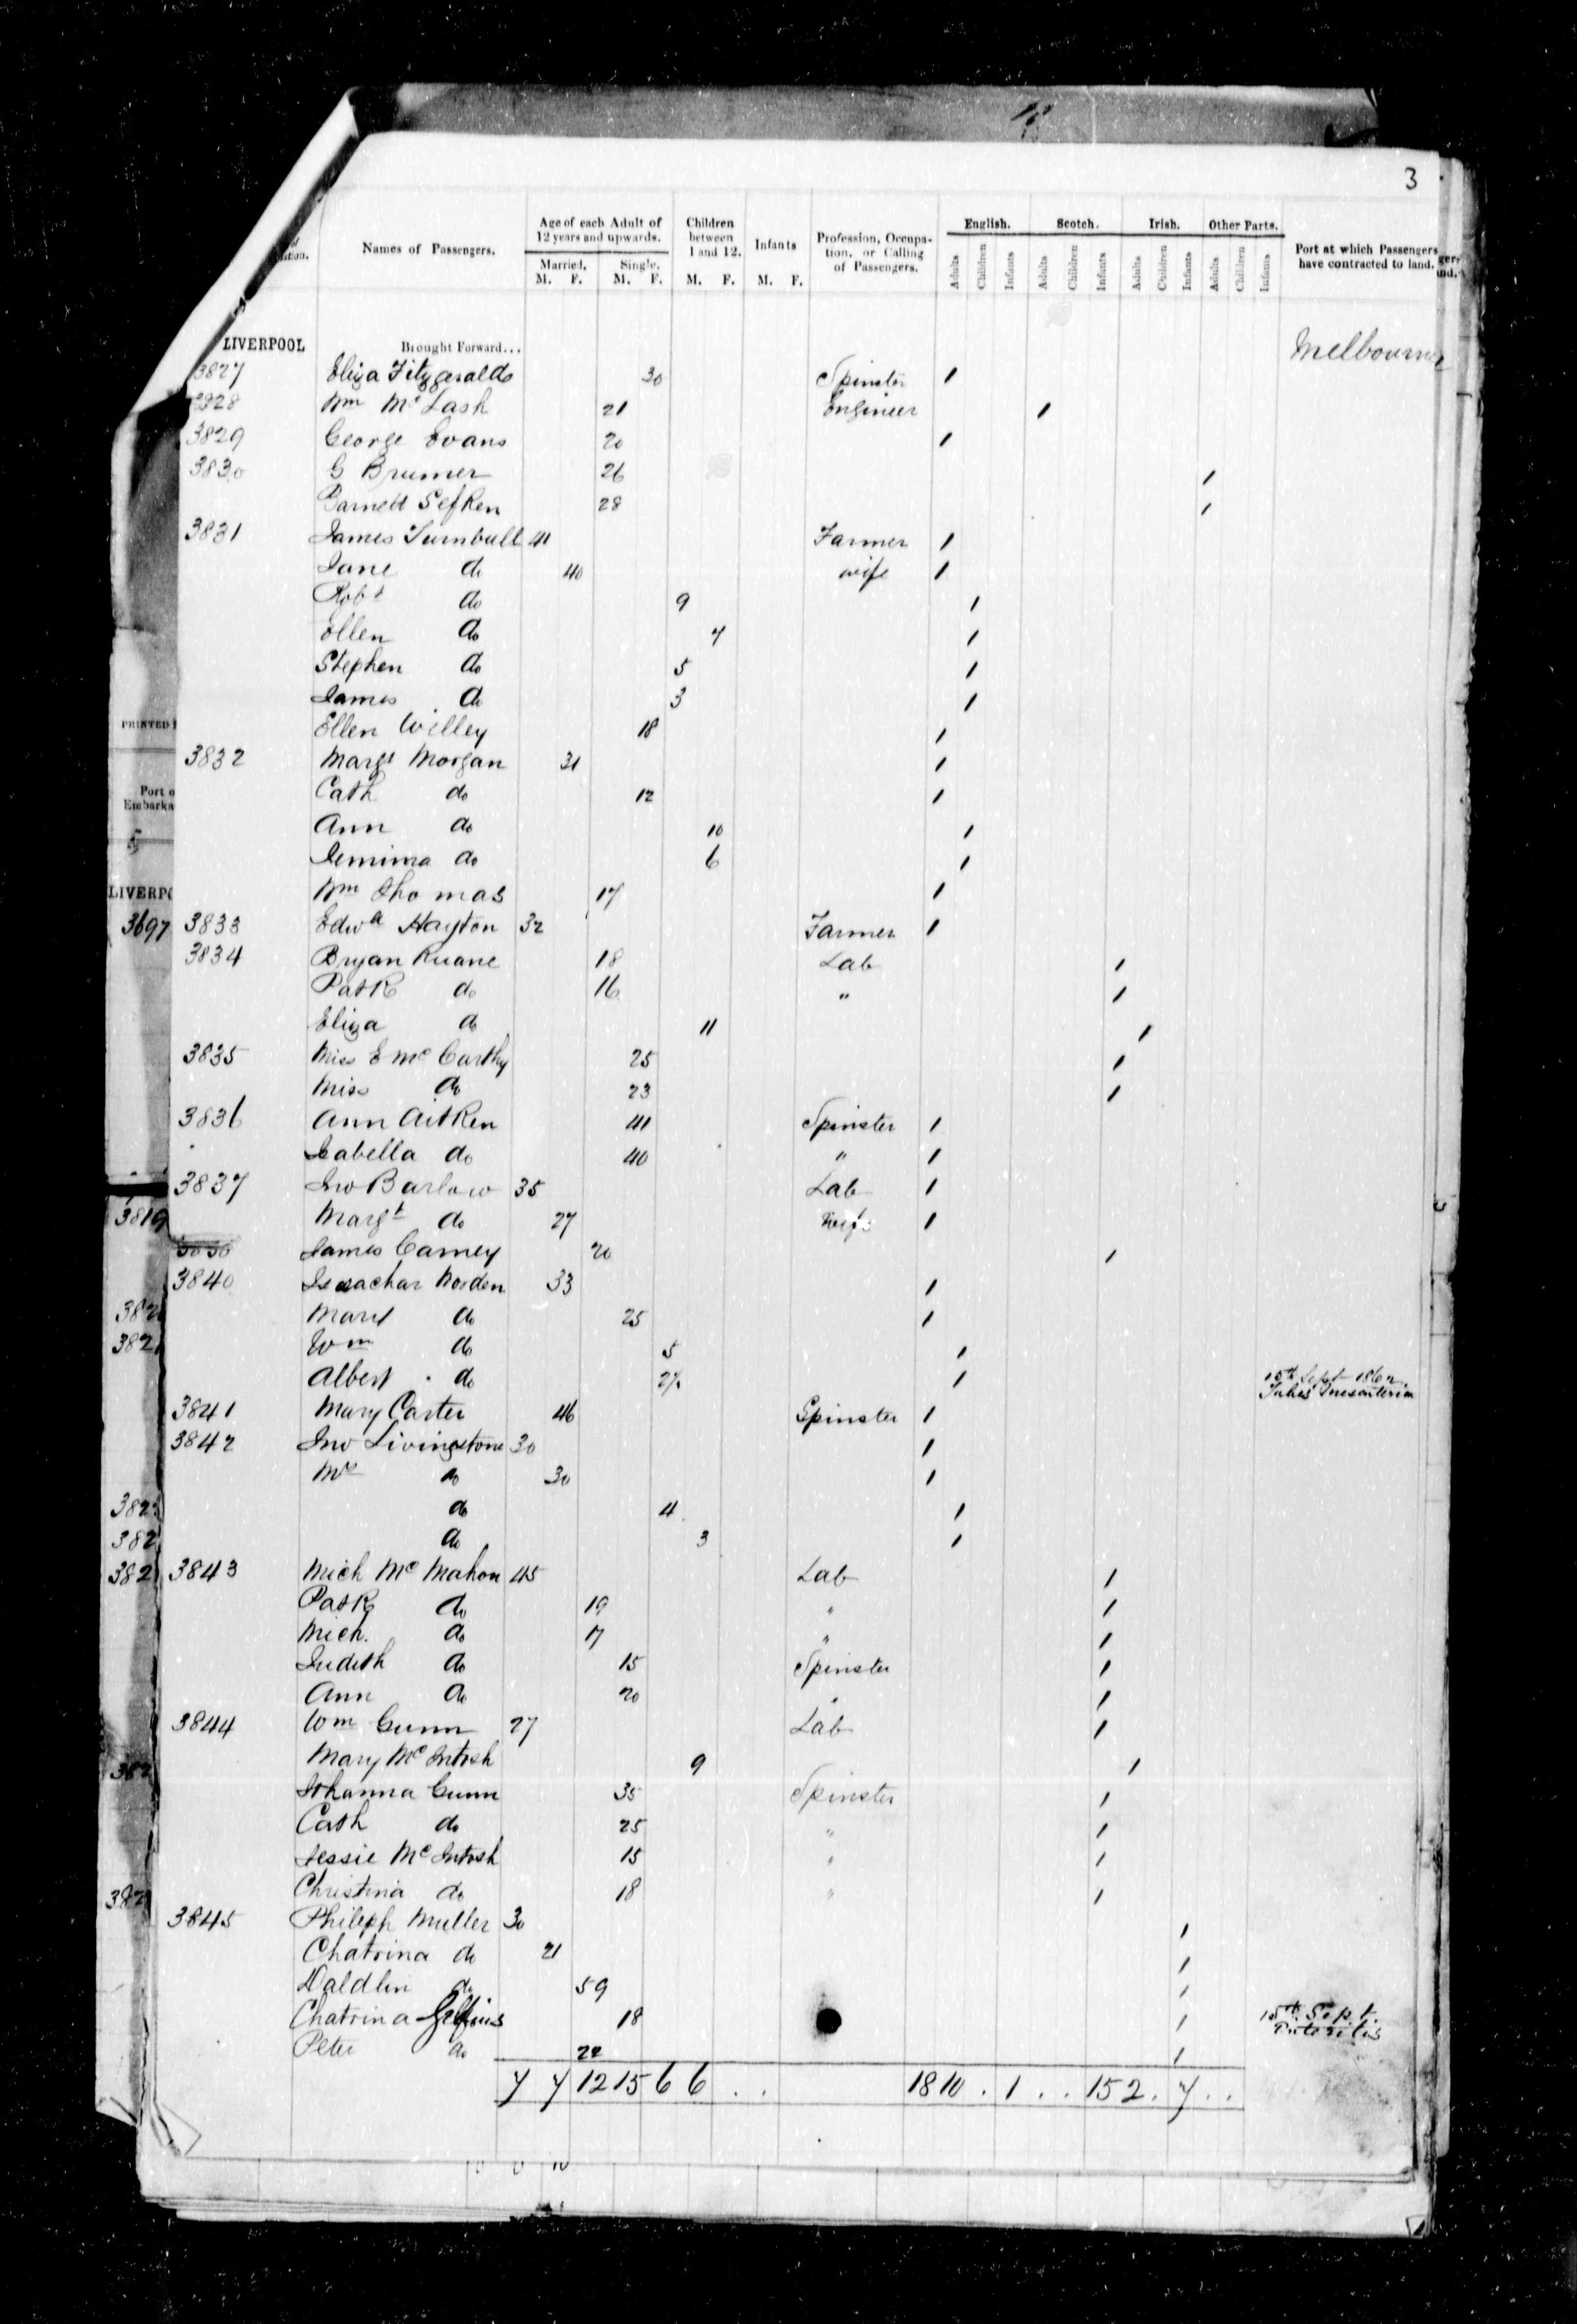 3
Names of Passengers.
Age of each Adult of 12 years and upwards.
Married. Single.
M. F. M. F.
Children between 1 and 12.
M. F.
Infants
M. F.
Profession, Occupation, or Calling of Passengers.
English. Scotch. Irish. Other Parts.
Adults Children Infants Adults Children Infants Adults Children Infants Adults Children Infants
Port at which Passengers have contracted to land.
LIVERPOOL Brought Forward... Melbourne
3827 Eliza Fitzgerald 30 Spinster 1
3828 Wm Mc Lash 21 Engineer 1
3829 George Evans 20 1
3830 G Brumer 26 1
Barnett Sefken 28 1
3831 James Turnbull 41 Farmer 1
Jane do 40 wife 1
Robt do 9 1
Ellen do 7 1
Stephen do 5 1
James do 3 1
Ellen Willey 18 1
3832 Margt Morgan 31 1
Cath do 12 1
Ann do 10 1
Jemima do 6 1
Wm Thomas 17 1
3833 Edwd Hayton 32 Farmer 1
3834 Bryan Ruane 18 Lab 1
Patk do 16 " 1
Eliza do 11 1
3835 Miss E McCarthy 25 1
Miss do 23 1
3836 Ann Aitken 41 Spinster 1
Isabella do 40 " 1
3837 Jno Barlow 35 Lab 1
Margt do 27 Wife 1
James Carney 20 1
3840 Issachar Norden 33 1
Mary do 25 1
Wm do 5 1
Albert do 2 1
15th Sept 1862
3841 Mary Carter 46 Spinster 1
3842 Jno Livingstone 30 1
Mrs do 30 1
do 4 1
do 3 1
3843 Mich McMahon 45 Lab 1
Patk do 19 " 1
Mich. do 17 " 1
Judith do 15 Spinster 1
Ann do 20 " 1
3844 Wm Gunn 27 Lab 1
Mary McIntosh 9 1
Johanna Gunn 35 Spinster 1
Cath do 25 " 1
Jessie McIntosh 15 " 1
Christina do 18 " 1
3845 Phileph Muller 30 1
Chatrina do 21 1
Daldlin do 59 1
Chatrina 18 1
15th Sept.
Peter do 22 1
7 7 12 15 6 6 . . 18 10 . 1 . . 15 2 . 7 . .
PRINTED
Port o
Embarka
LIVERPO
3697
3819